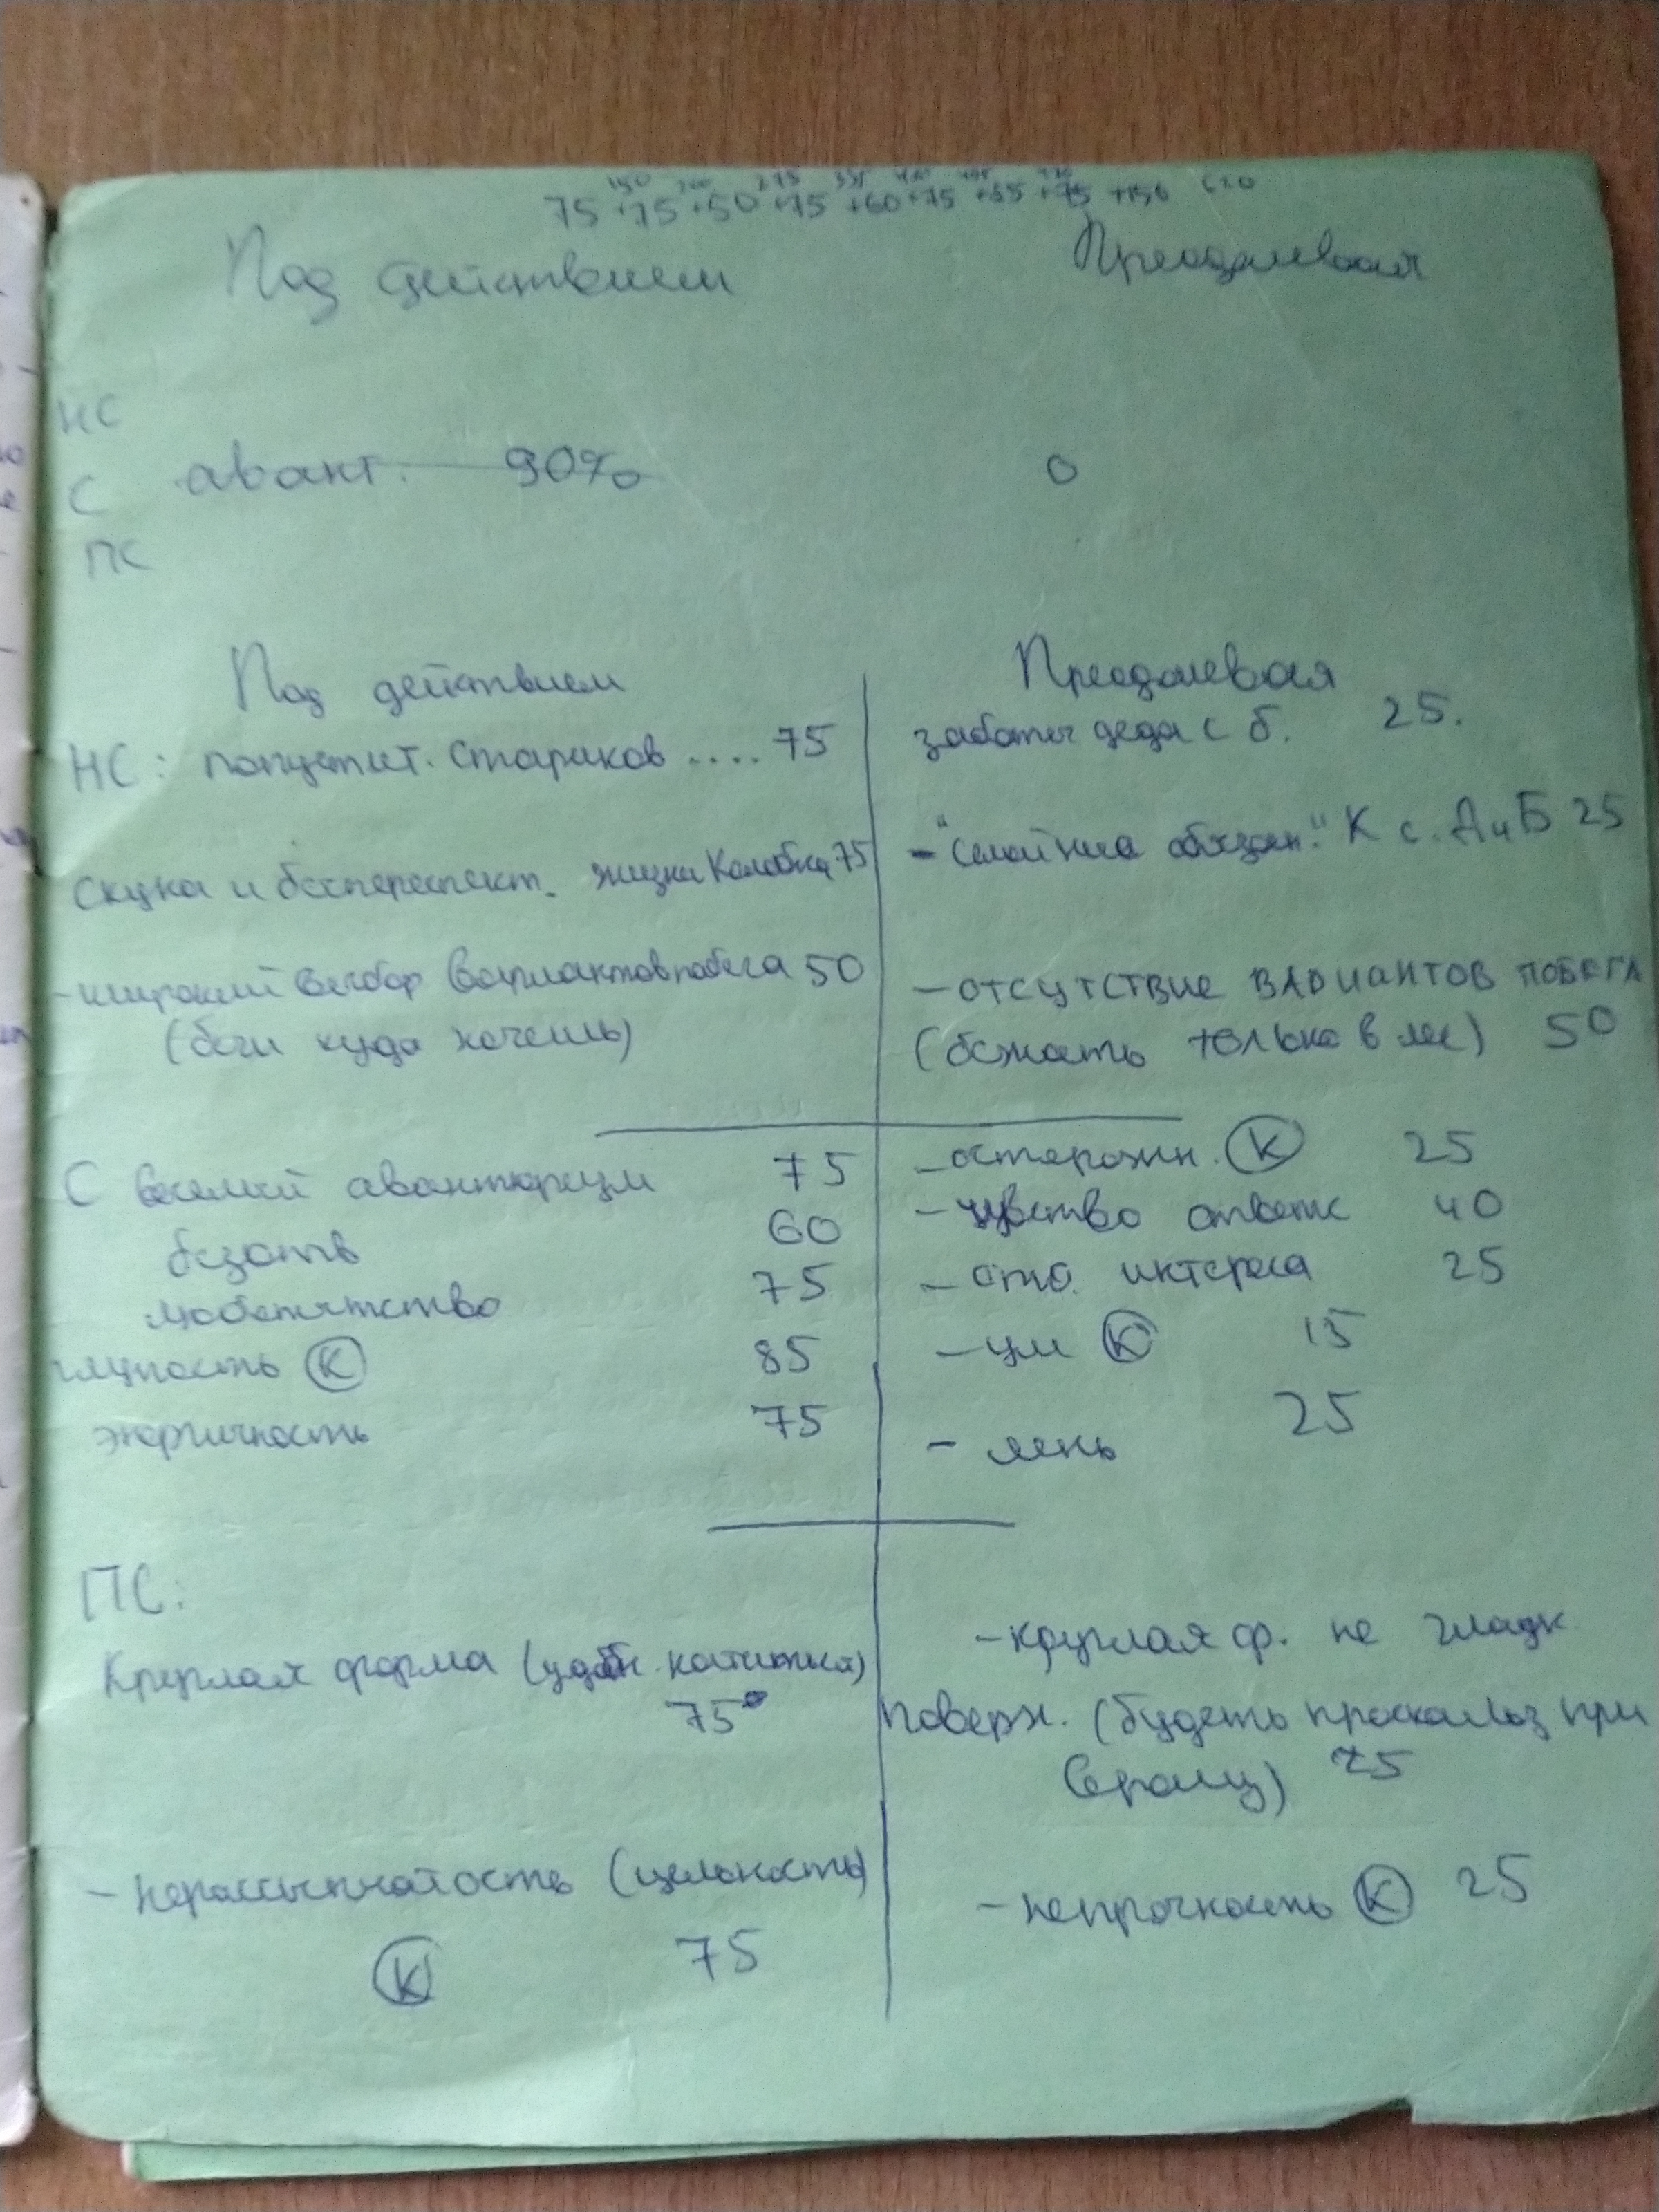 150 200 275 335 410 495
75 +75 +50 +75 +60 +75 +85 +75 +150
Под действием Преодолевая
НС
С авант. 90% 0
ПС
Под действием Преодолевая
НС: попустит. стариков .... 75 заботы деда с б. 25.
скука и бесперспект. жизни Колобка 75 - "семейные обязан." К с. Д и Б 25
- широкий выбор вариантов побега 50 - отсутствие вариантов побега
(беги куда хочешь) (бежать только в лес) 50
С веселый авантюризм 75 - осторожн. К 25
безотв 60 - чувство ответс 40
любопытство 75 - отс. интереса 25
глупость К 85 - ум К 15
энергичность 75 - лень 25
ПС:
Круглая форма (удобн. катиться) - круглая ф. не гладк.
75 поверх. (будеть проскальз при
вращ) 25
- нерассыпчатость (цельность) - непрочность К 25
К 75